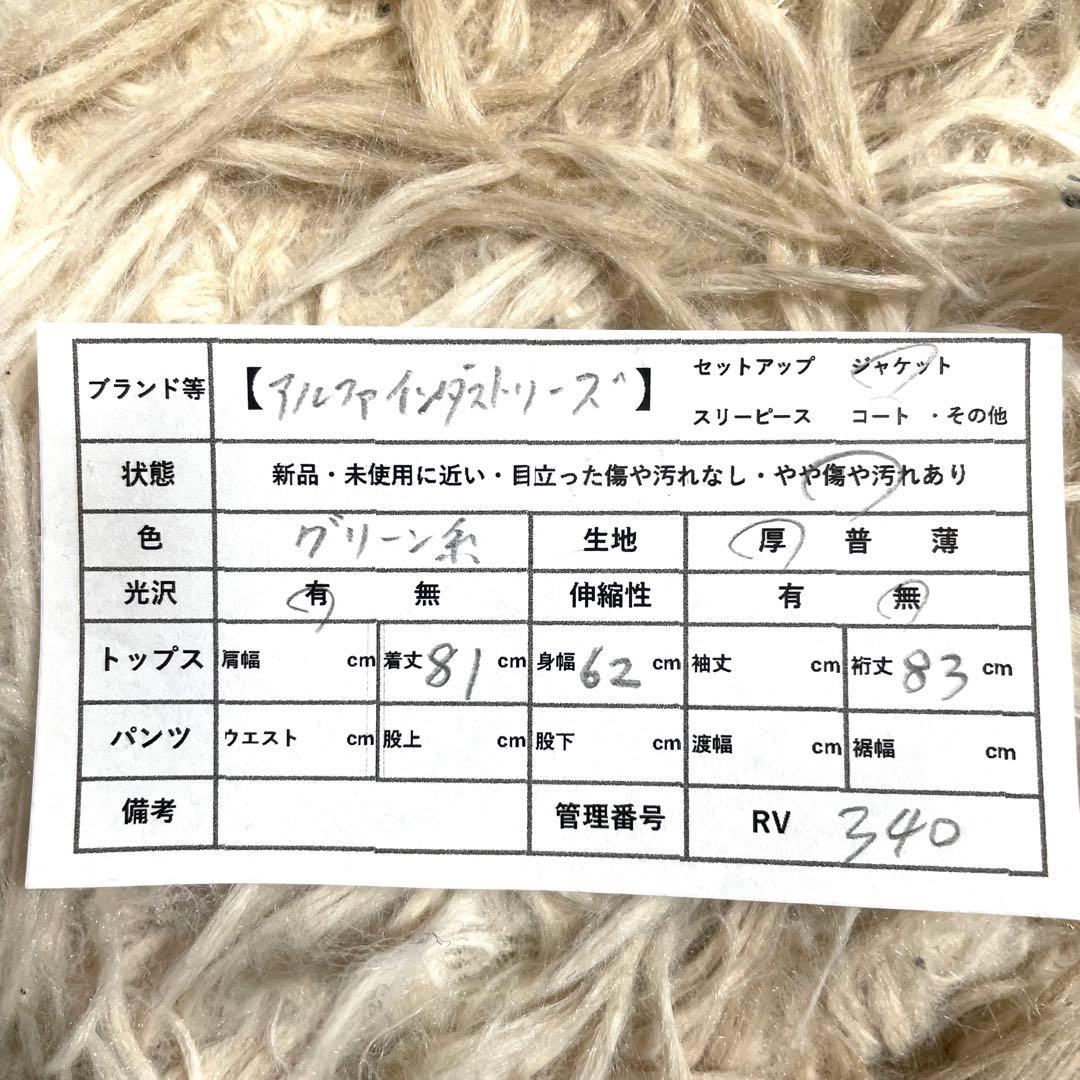 ブランド等 【アルファインダストリーズ】 セットアップ ジャケット
スリーピース コート ・その他
状態 新品・未使用に近い・目立った傷や汚れなし・やや傷や汚れあり
色 グリーン系 生地 厚 普 薄
光沢 有 無 伸縮性 有 無
トップス 肩幅 cm 着丈 81 cm 身幅 62 cm 袖丈 cm 裄丈 83 cm
パンツ ウエスト cm 股上 cm 股下 cm 渡幅 cm 裾幅 cm
備考 管理番号 RV 340